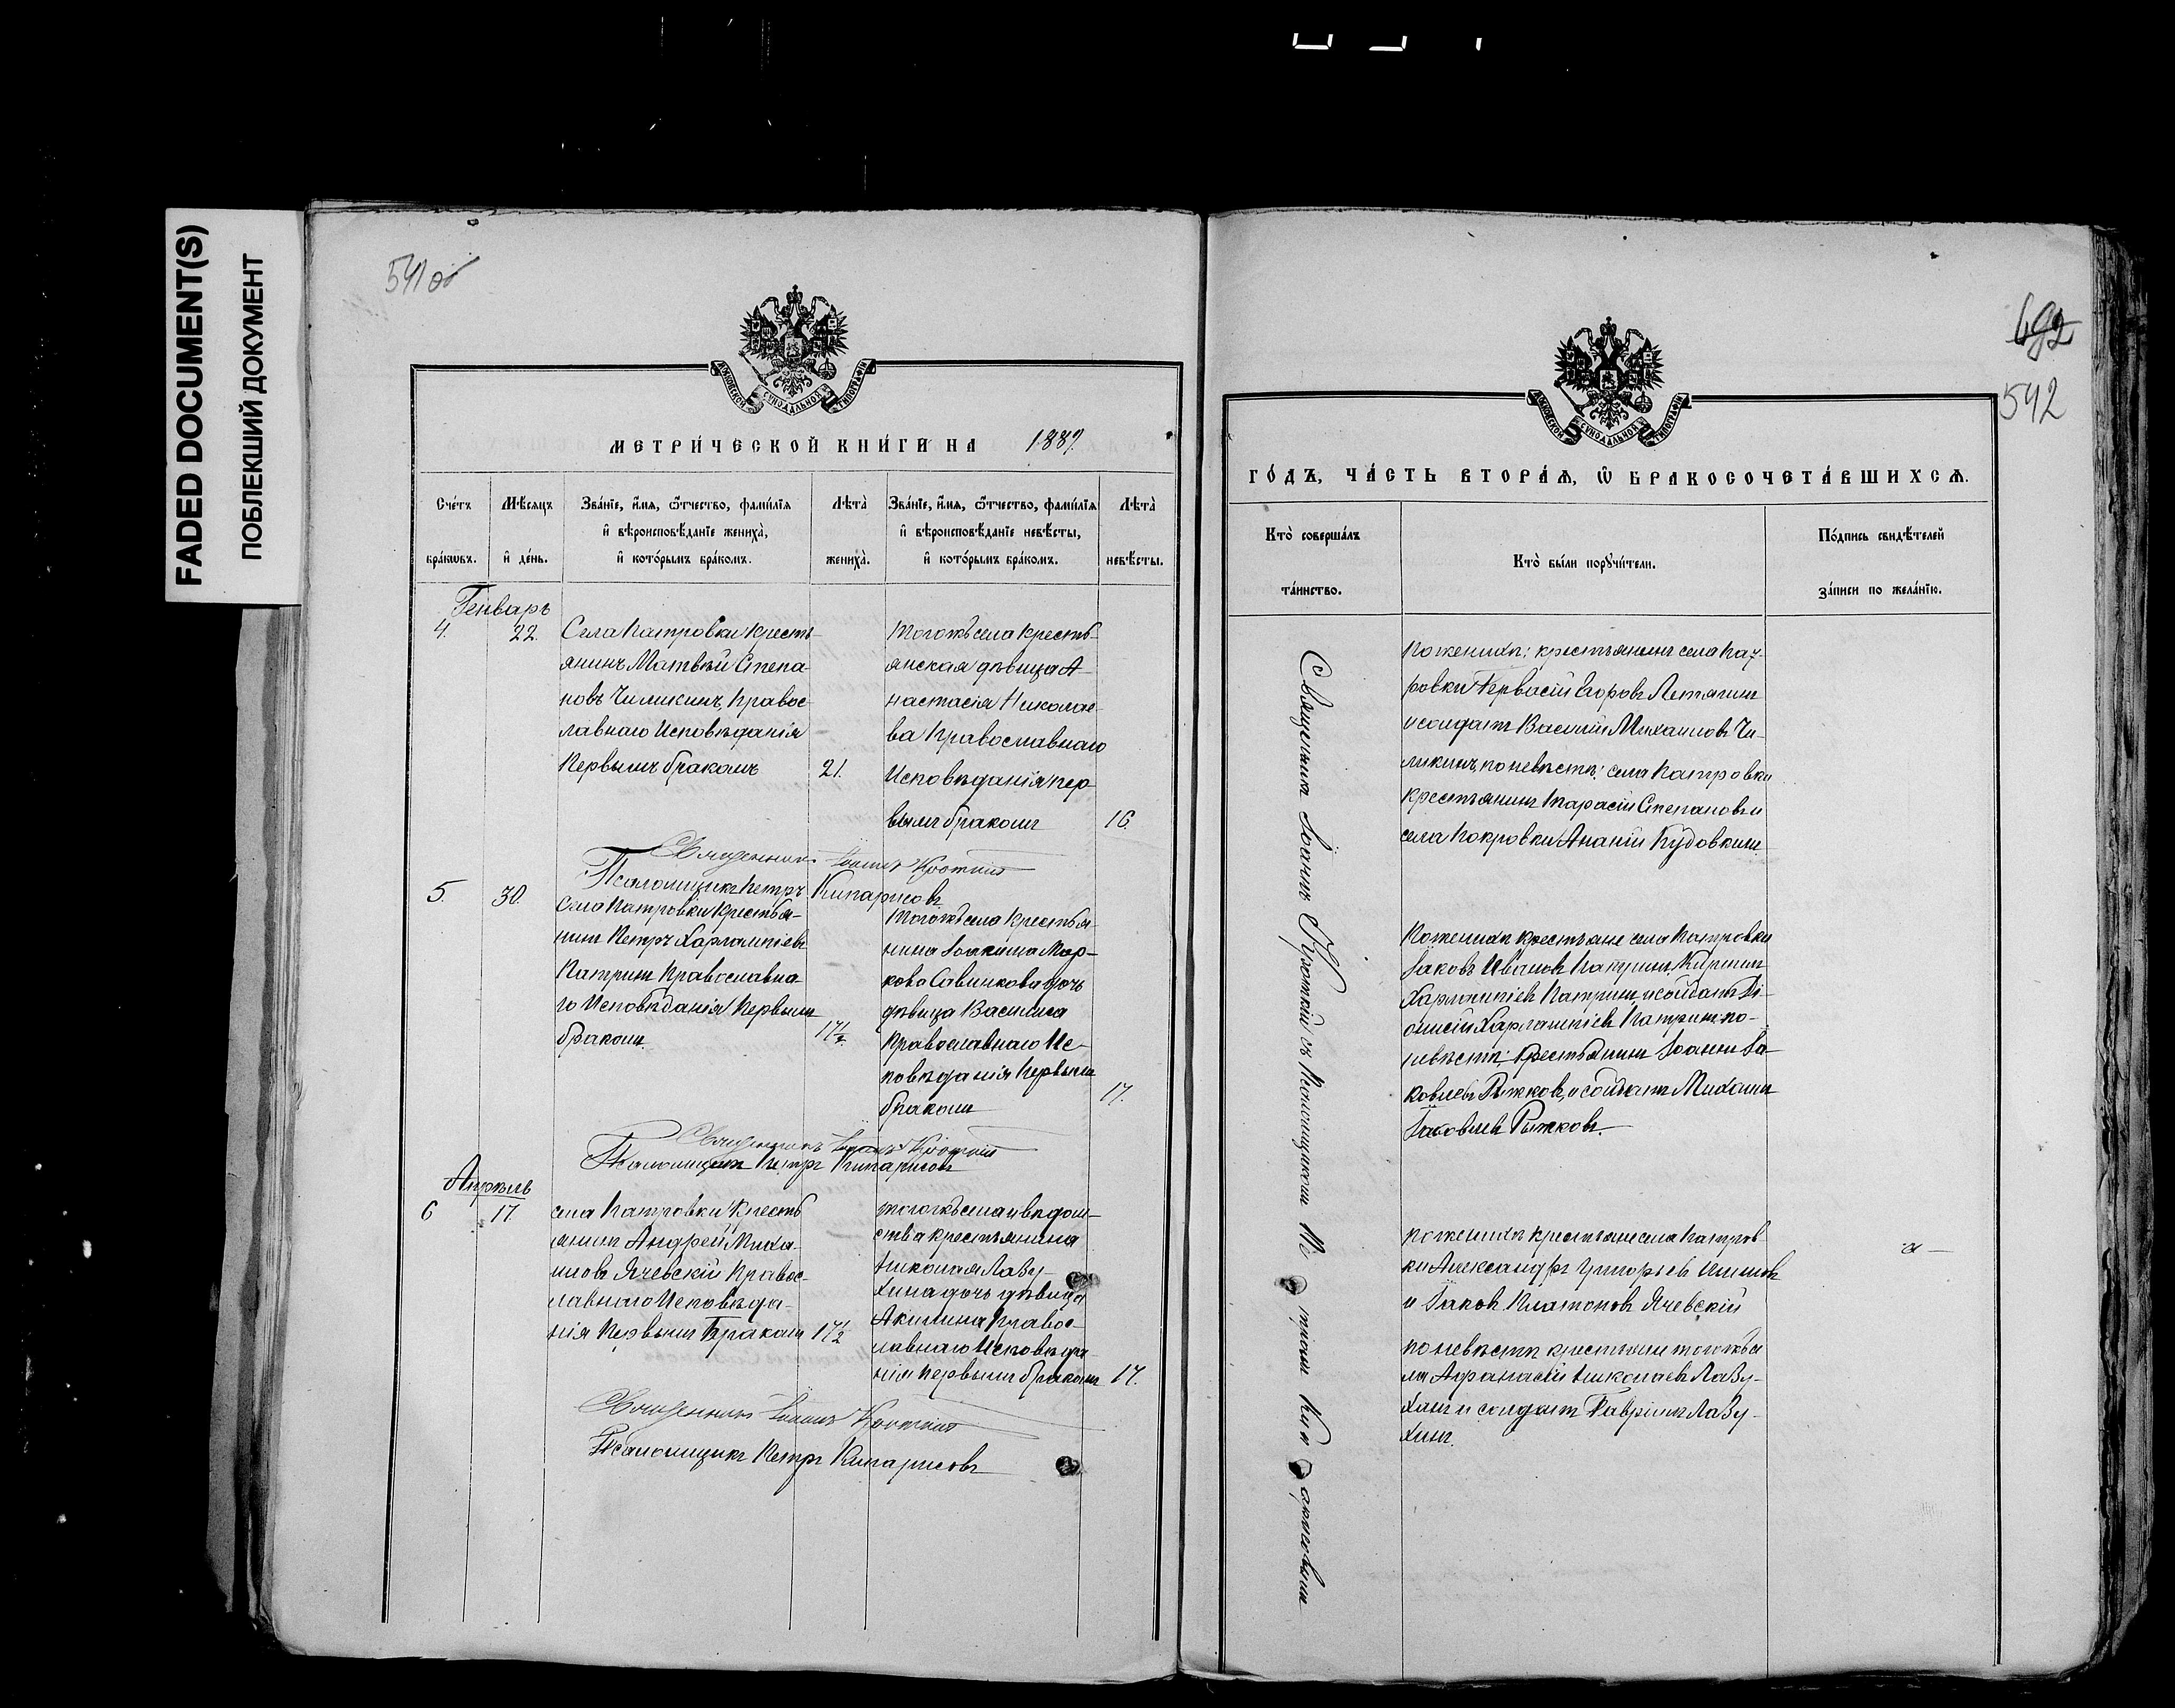 FADED DOCUMENT(S)
ПОБЛЕКШИЙ ДОКУМЕНТ
541об
МЕТРИ́ЧЕСКОЙ КНИ́ГИ НА 1887.
Сче́тъ бра́кѡвъ.
Мѣ́сяцъ и҆ де́нь.
Зва́нїе, и҆́мя, ѻ҆́тчество, фами́лїя и҆ вѣроисповѣ́данїе жениха̀, и҆ кото́рымъ бра́комъ.
Лѣ́та жениха̀.
Зва́нїе, и҆́мя, ѻ҆́тчество, фами́лїя и҆ вѣроисповѣ́данїе невѣ́сты, и҆ кото́рымъ бра́комъ.
Лѣ́та невѣ́сты.
Генварь
4. 22.
Села Патровки Кресть-
янинъ Матвѣй Степа-
новъ Чиликинъ, Правос-
лавнаго Исповѣданія
Первымъ бракомъ 21.
Тогожъ села кресть-
янская дѣвица А-
настасія Николае-
ва Православнаго
Исповѣданія пер
вымъ бракомъ 16.
Священникъ Іоаннъ Кроткій
Псаломщикъ Петръ Кипарисовъ
5. 30.
Села Патровки Крестья-
нинъ Петръ Харлампіевъ
Патринъ Православна-
го Исповѣданія Первымъ
бракомъ. 17½
Тогожъ села Крестья
нина Іоакима Мар-
кова Савинкова дочь
дѣвица Василиса
Православнаго Ис-
повѣданія Первымъ
бракомъ 17.
Священникъ Іоаннъ Кроткій
Псаломщикъ Петръ Кипарисовъ
Апрѣль
6 17.
села Патровки Кресть
янинъ Андрей Миха-
иловъ Ячевскій Правос-
лавнаго Исповѣда-
нія Первымъ Бракомъ 17½
тогожъ села и вѣдом-
ства крестьянина
Николая Лазу-
хина дочь дѣвица
Акилина Правос-
лавнаго Исповѣда
нія первымъ бракомъ 17.
Священникъ Іоаннъ Кроткій
Псаломщикъ Петръ Кипарисовъ
492
542
ГО́ДЪ, ЧА́СТЬ ВТОРА́Я, Ѡ҆ БРАКОСОЧЕТА́ВШИХСЯ.
Кто̀ соверша́лъ та́инство.
Кто̀ бы́ли порꙋчи́тели.
По́дпись свидѣ́телей за́писи по жела́нїю.
Священникъ Іоаннъ Кроткій съ Псаломщикомъ Петромъ Кипарисовымъ
По женихѣ: крестьянинъ села Пат-
ровки Егоровъ Летягинъ
и солдатъ Василій Михаиловъ Чи-
ликинъ, по невѣстѣ: села Патровки
крестьянинъ Тарасій Степановъ и
села Покровки Ананій Кудовкинъ.
По женихѣ крестьяне села Патровки
Іаковъ Ивановъ
Харлампіевъ Патринъ и солдатъ Ді-
онисій Харлампіевъ Патринъ по-
невѣстѣ: крестьянинъ Іоаннъ Іа-
ковлевъ Рыжковъ, и солдатъ Михаилъ
Іаковлевъ Рыжковъ.
По женихѣ крестьяне села Патров
ки Александръ Григорьевъ
и Іаковъ Платоновъ Ячевскій
по невѣстѣ крестьяне тогожъ се
ла Афанасій Николаевъ Лазу-
хинъ и солдатъ Гавріилъ Лазу-
хинъ.